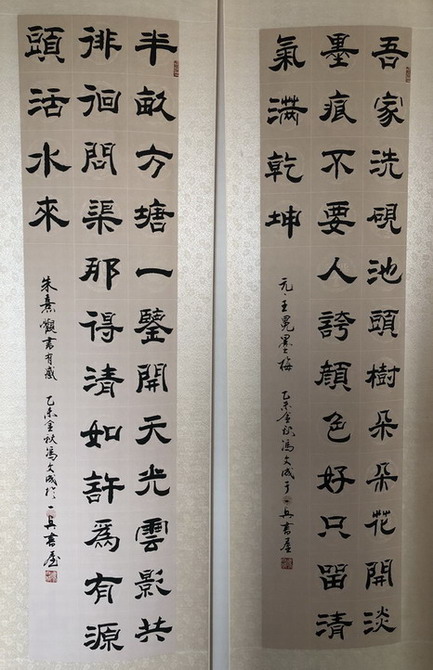 吾家洗硯池頭樹朵朵花開淡
墨痕不要人誇顏色好只留清
氣滿乾坤
元·王冕墨梅 乙未金秋馮文成于一書屋
半畝方塘一鑒開天光雲影共
徘徊問渠那得清如許爲有源
頭活水來
朱熹觀書有感 乙未金秋馮文成於一書屋